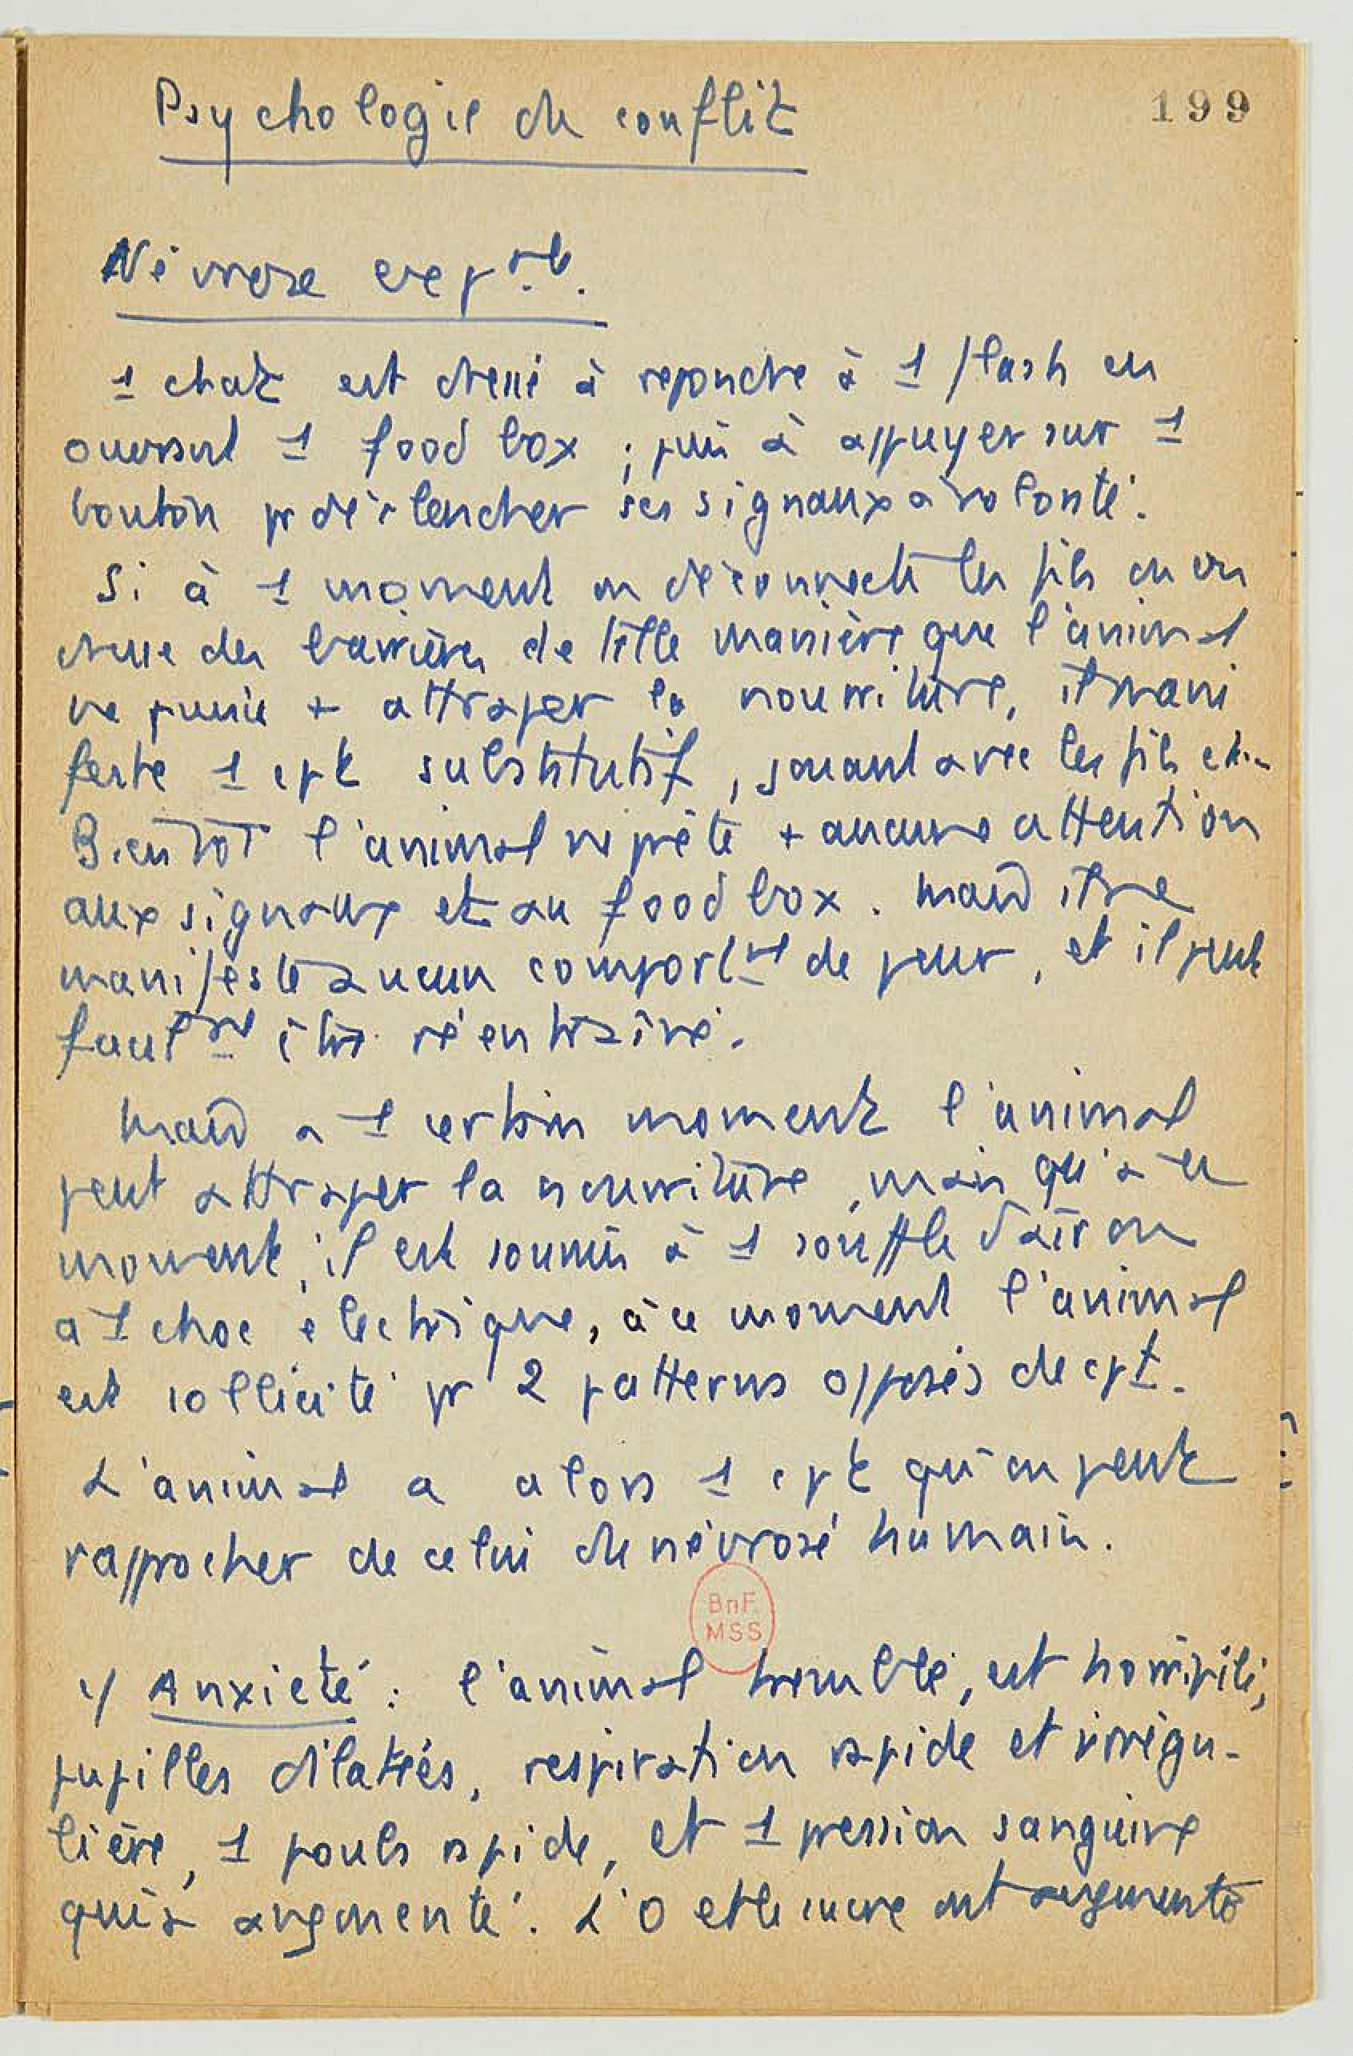 Psychologie du conflit
199
Névrose expale.
1 chat est dressé à repondre à 1 flash en
ouvrant 1 food box ; puis à appuyer sur 1
bouton pr déclencher ses signaux a volonté.
Si à 1 moment on déconnecte les fils ou on
dresse des barrières de telle manière que l'animal
ne puisse + attraper la nourriture, il mani
feste 1 cpt substitutif, jouant avec les fils etc..
Bientôt l'animal ne prête + aucune attention
aux signaux et au food box. Mais il ne
manifeste aucun comportnt de peur, et il peut
facilnt être réentraîné.
Mais a 1 certain moment l'animal
peut attraper la nourriture, mais qu'a ce
moment, il est soumis à 1 souffle d'air ou
a 1 choc électrique, à ce moment l'animal
est sollicité pr 2 patterns opposés de cpt.
L'animal a alors 1 cpt qu'on peut
rapprocher de celui du névrosé humain.
BnF
MSS
1/ Anxieté : l'animal tremble, est horripilé,
pupilles dilatées, respiration rapide et irrégu-
lière, 1 pouls rapide, et 1 pression sanguine
qui a augmenté. L'O et le sucre ont augmenté